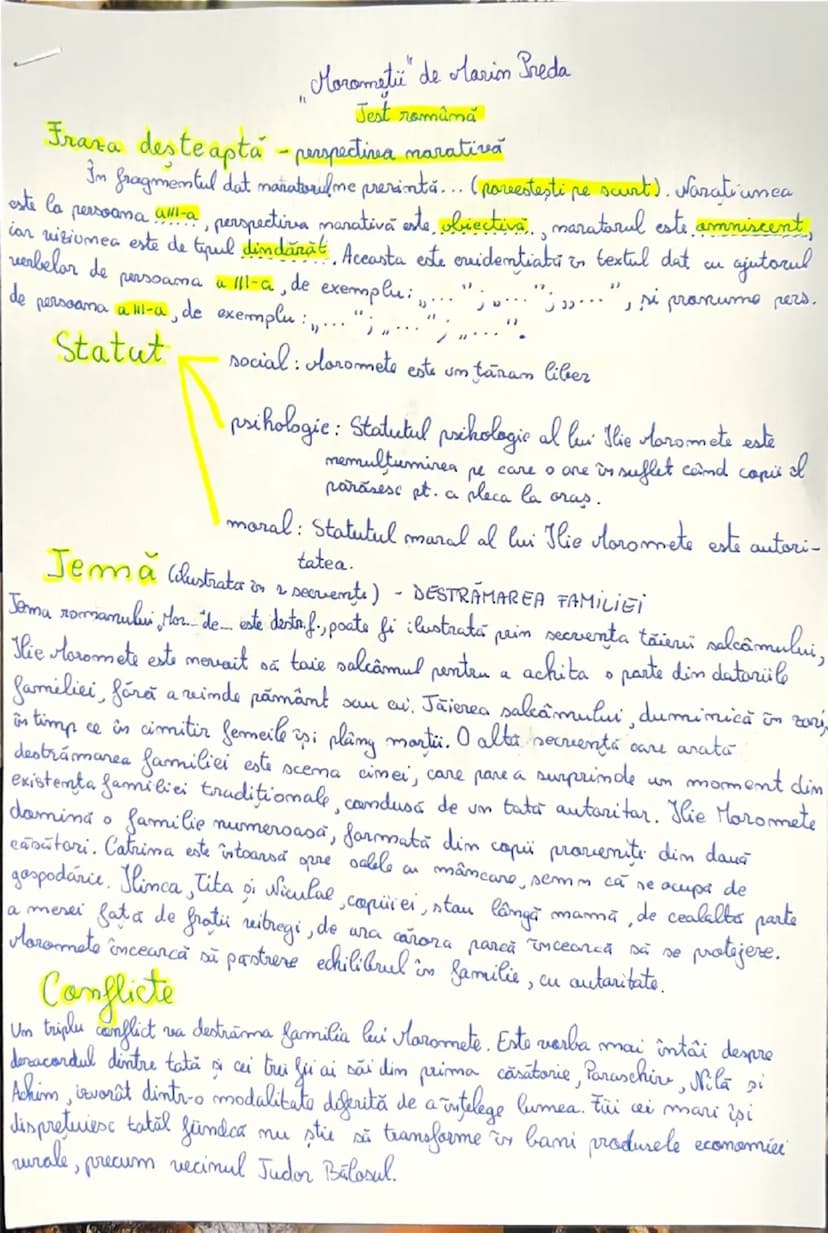 „Moromeții" de Marin Preda
Test română
Fraza deșteaptă - perspectiva narativă
În fragmentul dat naratorul ne prezintă... (povestești pe scurt). Narațiunea
este la persoana a III-a, perspectiva narativă este obiectivă, naratorul este omniscent,
iar viziunea este de tipul dindărăt. Aceasta este evidențiată în textul dat cu ajutorul
verbelor de persoana a III-a, de exemplu: „..."; „..."; „...", și pronume pers.
de persoana a III-a, de exemplu: „..."; „..."; „...".
Statut
social: Moromete este un țăran liber
psihologic: Statutul psihologic al lui Ilie Moromete este
nemulțumirea pe care o are în suflet când copiii îl
părăsesc pt. a pleca la oraș.
moral: Statutul moral al lui Ilie Moromete este autori-
tatea.
Temă (ilustrata în 2 secvențe) - DESTRĂMAREA FAMILIEI
Tema romanului „Mor..." de... este destr.f., poate fi ilustrată prin secvența tăierii salcâmului,
Ilie Moromete este nevoit să taie salcâmul pentru a achita o parte din datoriile
familiei, fără a vinde pământ sau oi. Tăierea salcâmului, duminică în zori,
în timp ce în cimitir femeile își plâng morții. O altă secvență care arată
destrămarea familiei este scena cinei, care pare a surprinde un moment din
existența familiei tradiționale, condusă de un tată autoritar. Ilie Moromete
domină o familie numeroasă, formată din copii proveniți din două
căsătorii. Catrina este întoarsă spre oalele cu mâncare, semn că se ocupă de
gospodărie. Ilinca, Tita și Niculae, copiii ei, stau lângă mamă, de cealaltă parte
a mesei față de frații vitregi, de ura cărora parcă încearcă să se protejeze.
Moromete încearcă să păstreze echilibrul în familie, cu autoritate.
Conflicte
Un triplu conflict va destrăma familia lui Moromete. Este vorba mai întâi despre
dezacordul dintre tată și cei trei fii ai săi din prima căsătorie, Paraschiv, Nilă și
Achim, izvorât dintr-o modalitate diferită de a înțelege lumea. Fiii cei mari își
disprețuiesc tatăl fiindcă nu știe să transforme în bani produsele economiei
rurale, precum vecinul Tudor Bălosul.